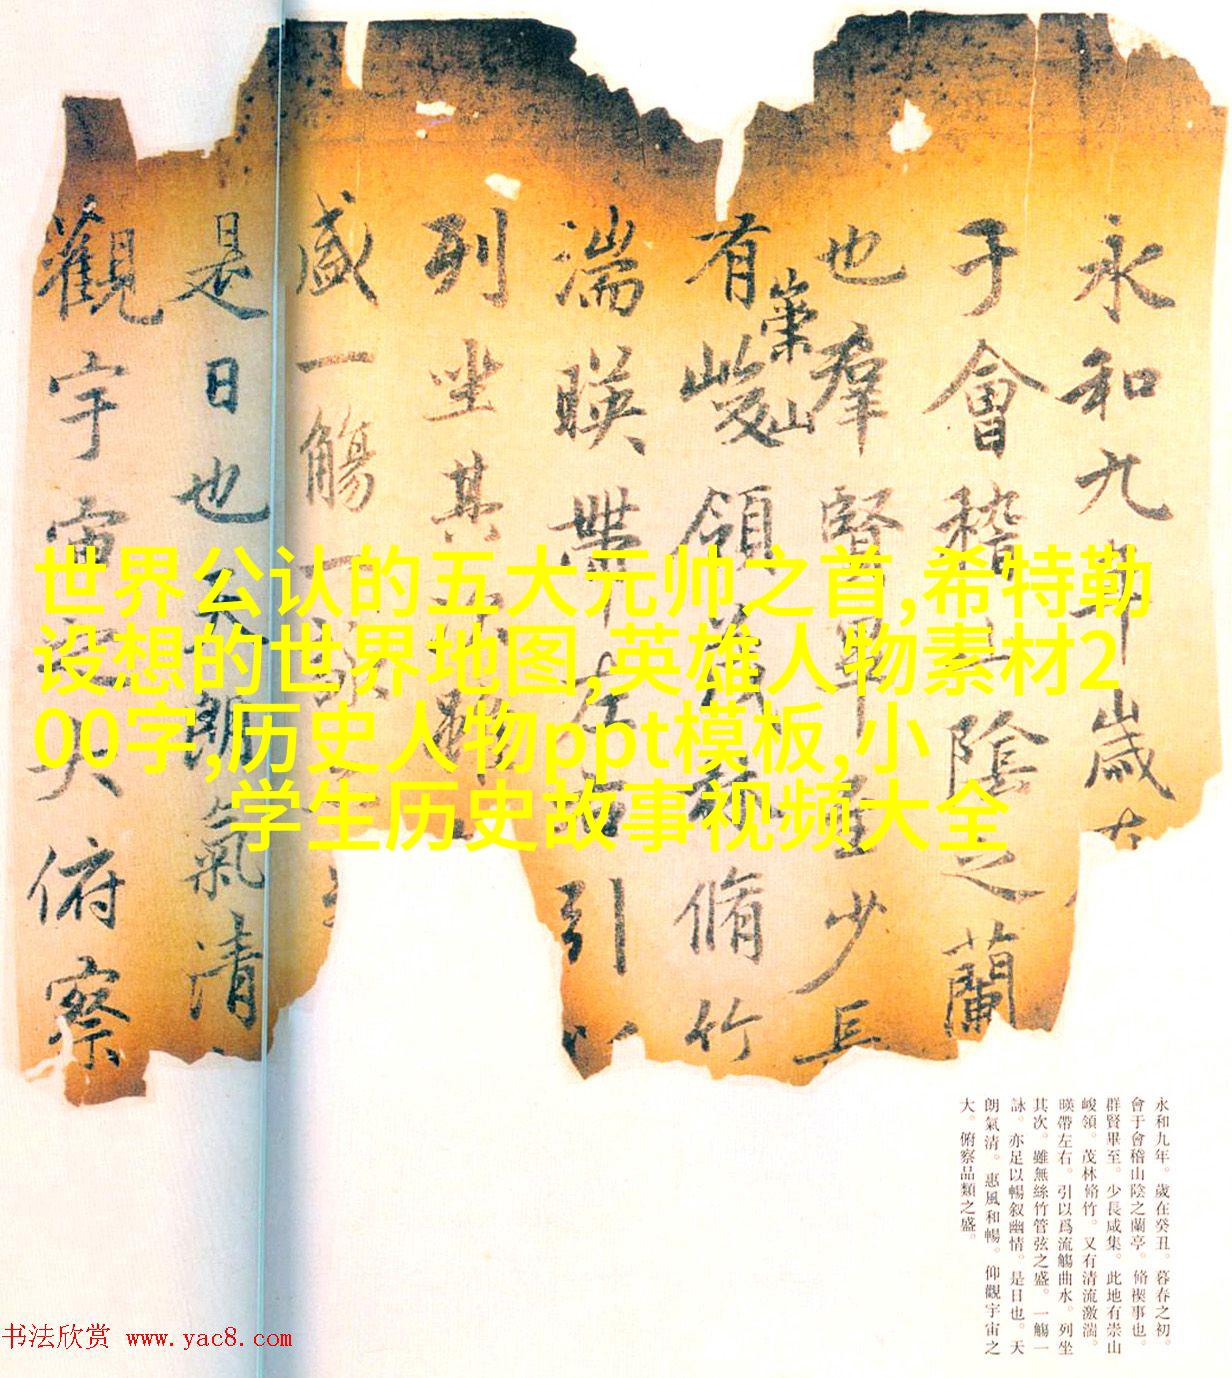 永和九年歲在
于會稽山陰之蘭
也羣賢畢至少長
有崇山峻領茂林脩竹
湍暎帶左右引以
列坐其次雖
盛一觴一詠亦
是日也天朗氣清
觀宇宙之大俯察
世界公认的五大元帅之首,希特勒
设想的世界地图,英雄人物素材2
00字,历史人物ppt模板,小
学生历史故事视频大全
永和九年。歲在癸丑。暮春之初。
會于會稽山陰之蘭亭。脩禊事也。
群賢畢至。少長咸集。此地有崇山
峻領。茂林脩竹。又有清流激湍。
暎帶左右。引以爲流觴曲水。列坐
其次。雖無絲竹管弦之盛。一觴一
詠。亦足以暢叙幽情。是日也。天
朗氣清。惠風和暢。仰觀宇宙之
大。俯察品類之盛。
书法欣赏 www.yac8.com